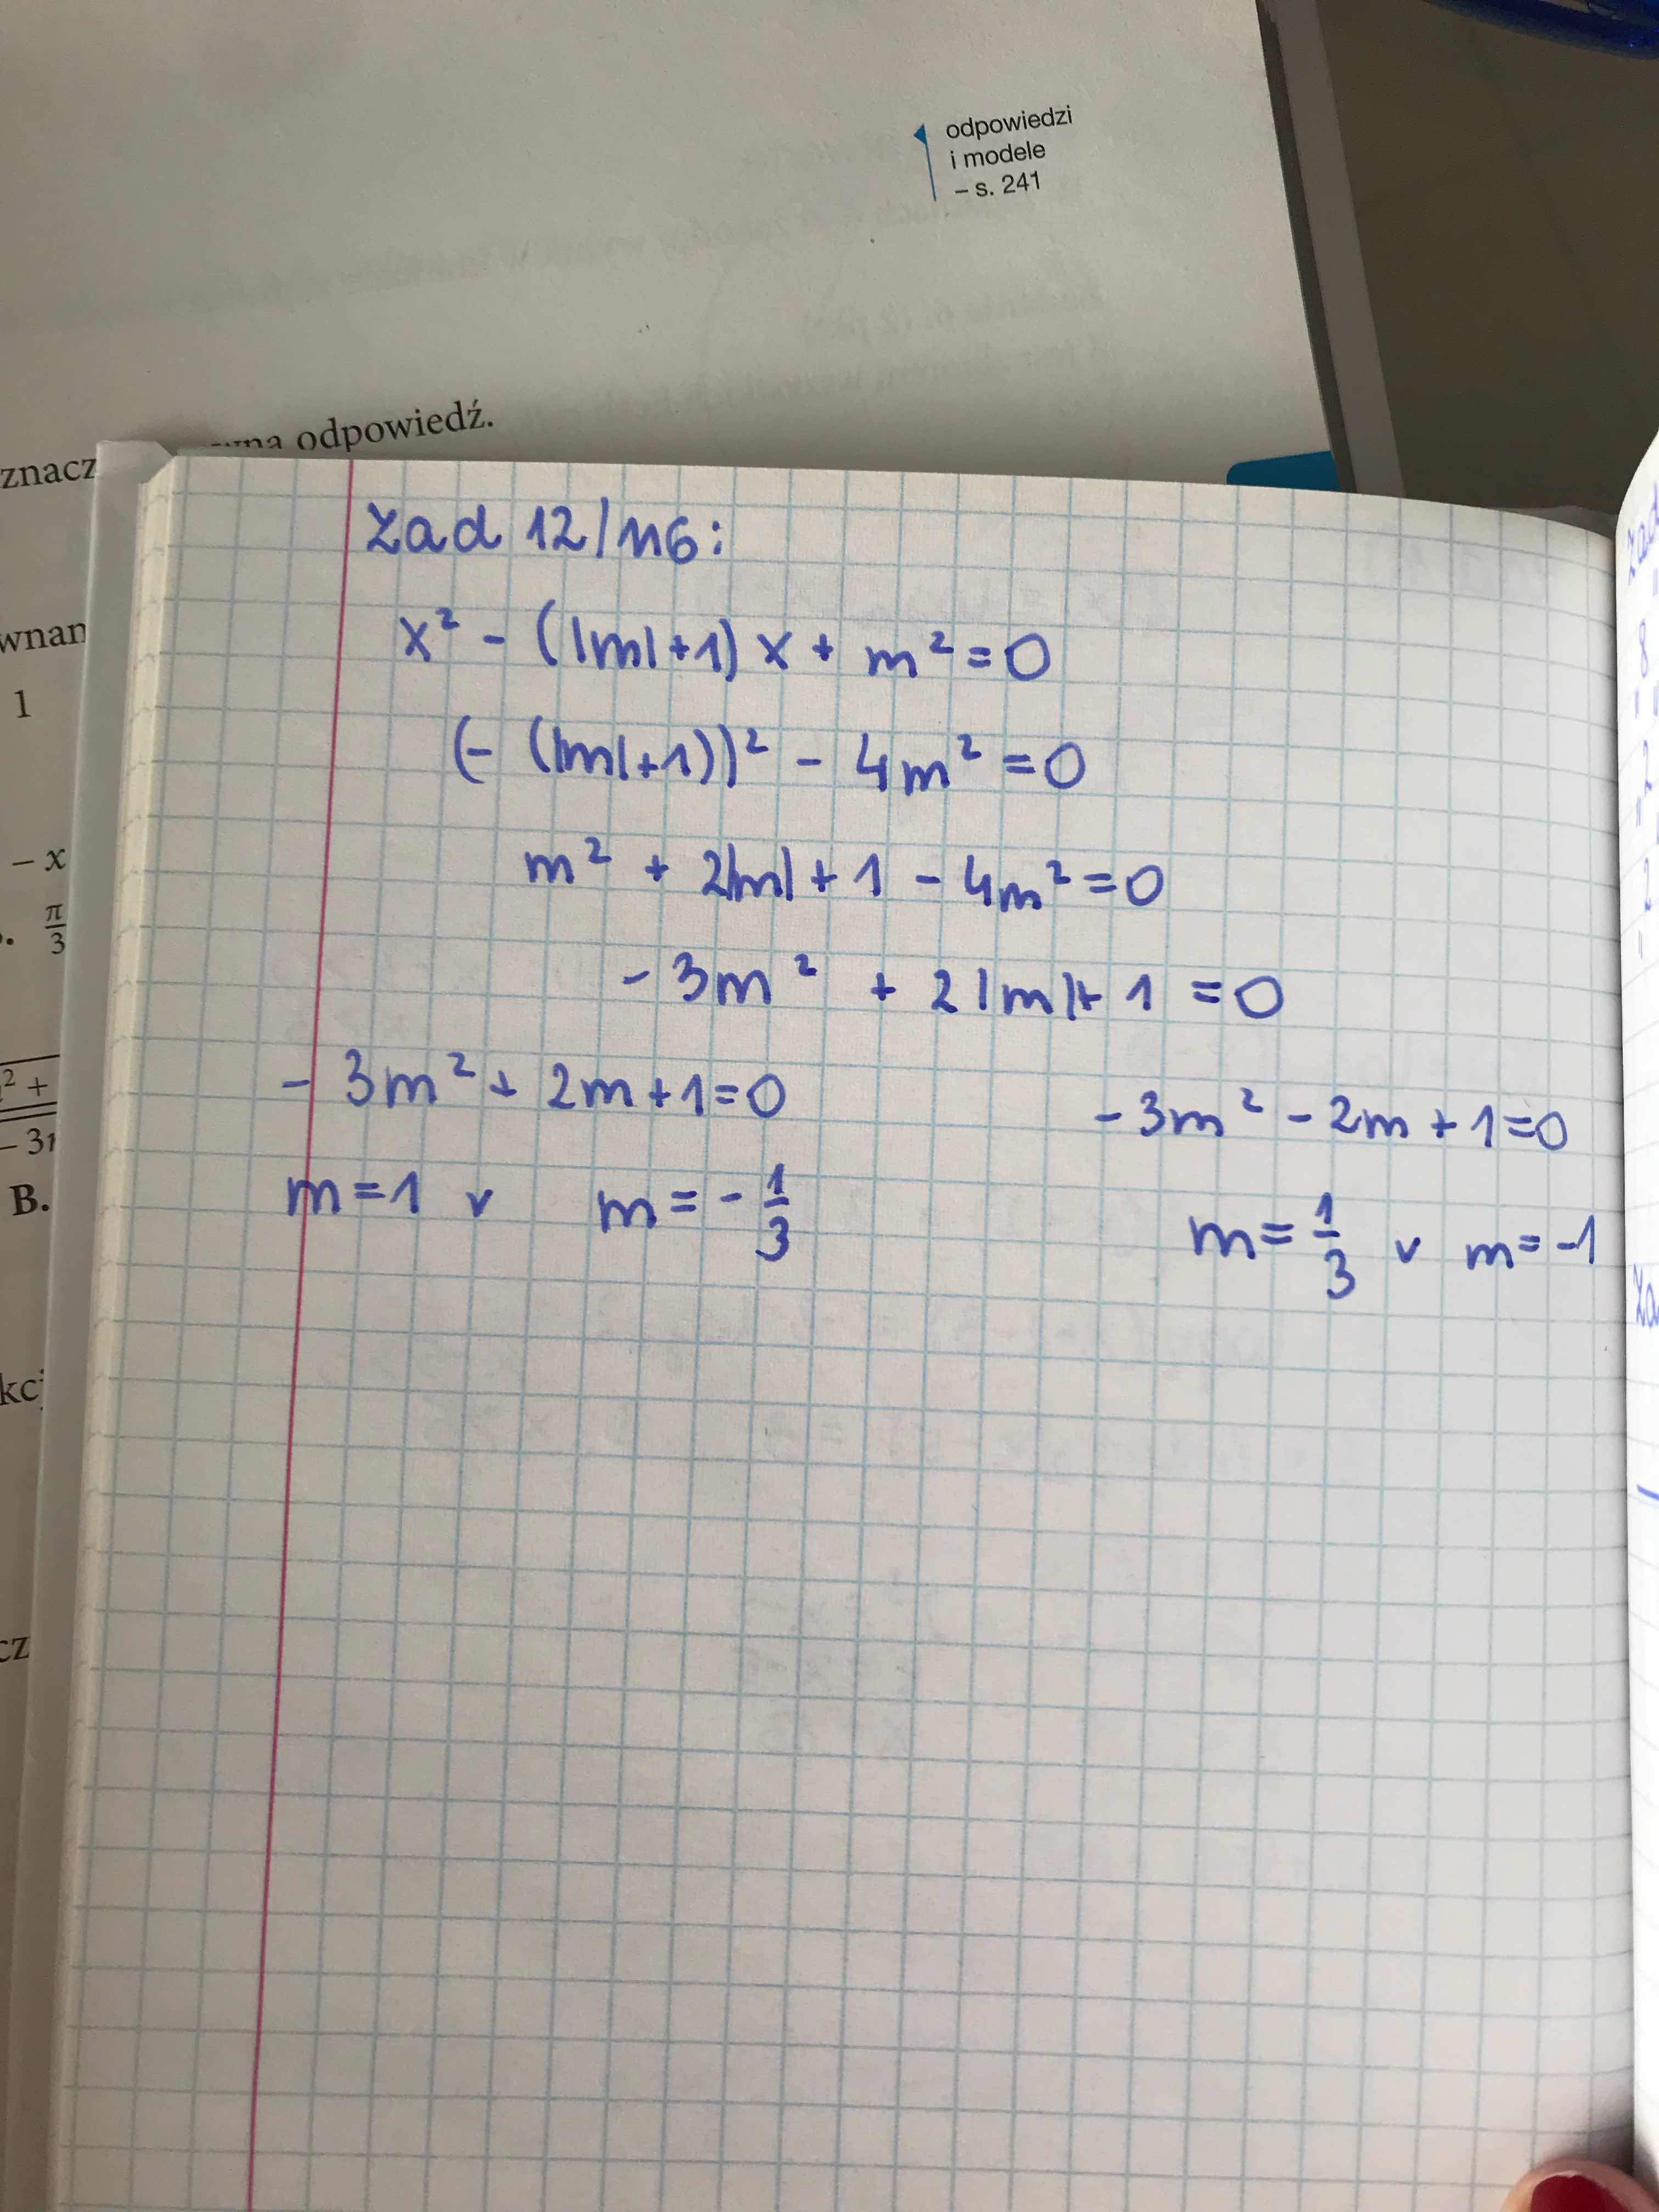 odpowiedzi
i modele
– s. 241
odpowiedź.
znacz
wnan
1
– x
π/3
² +
– 3
B.
kcj
cz
Zad 12/116:
x² - (|m|+1) x + m² = 0
(- (|m|+1))² - 4m² = 0
m² + 2|m| + 1 - 4m² = 0
- 3m² + 2|m| + 1 = 0
- 3m² + 2m + 1 = 0
- 3m² - 2m + 1 = 0
m = 1 v m = - 1/3
m = 1/3 v m = -1